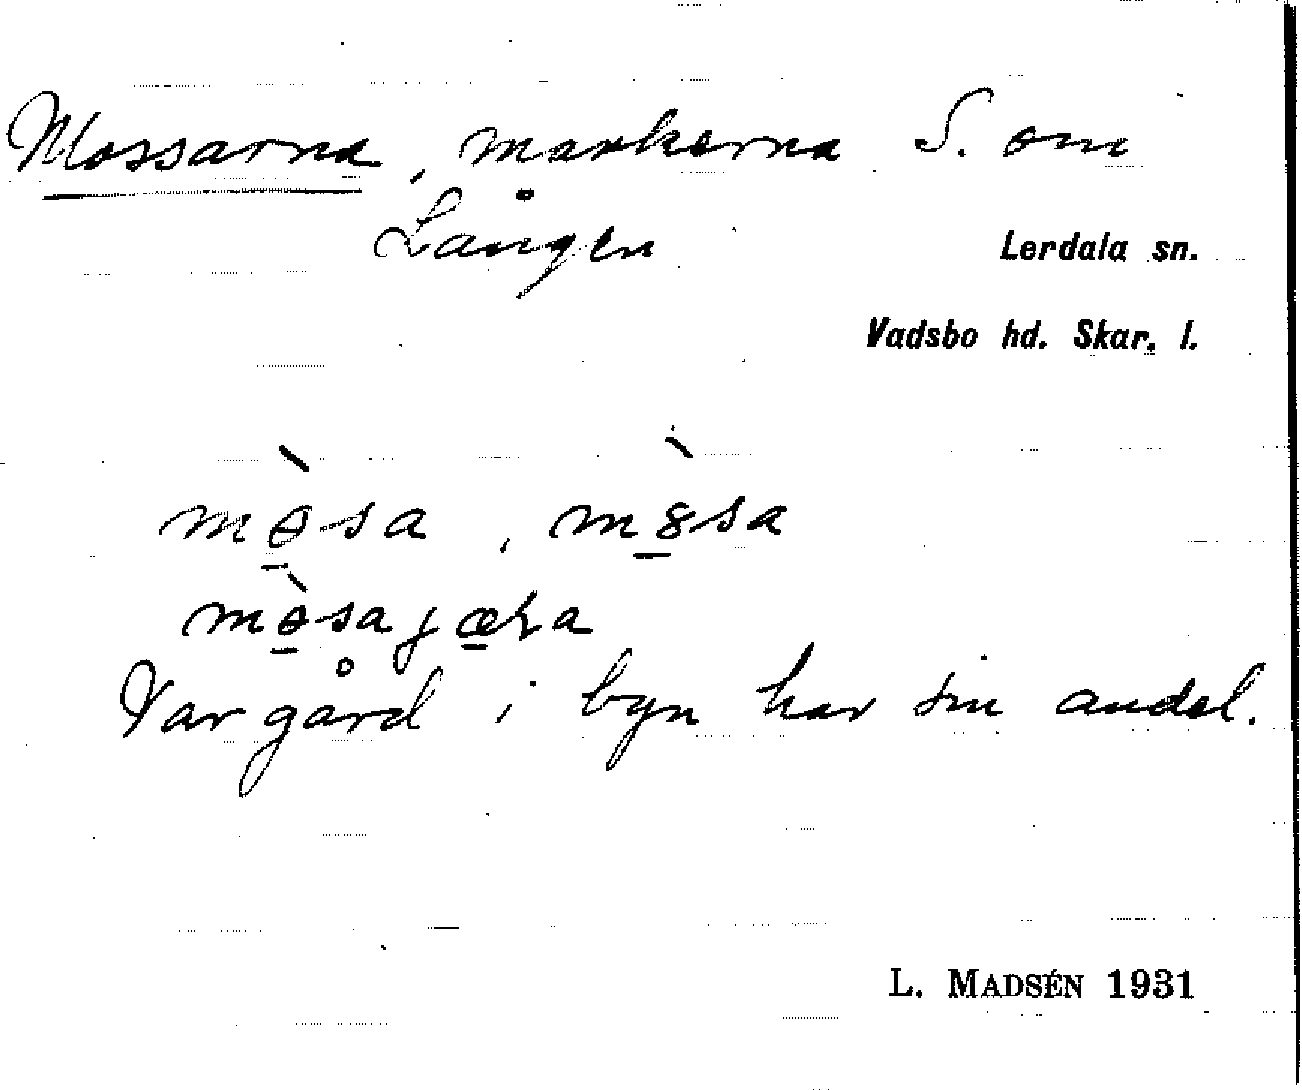 Mossarna, markerna S. om
Lången
Lerdala sn.
Vadsbo hd. Skar. l.
mɵ̀sa, m8̀sa
mɵ̀saɟæɽa
Var gård i byn har sin andel.
L. MADSÉN 1931